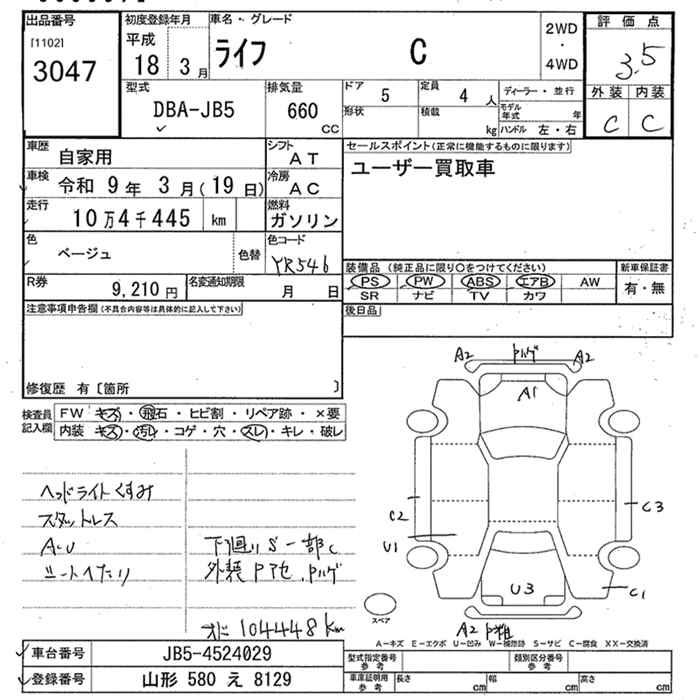 出品番号
[1102]
3047
初度登録年月
平成
18 3 月
車名・グレード
ライフ C
2WD
・
4WD
評 価 点
3.5
外装 内装
C C
型式
DBA-JB5
排気量
660
CC
ドア 5
定員 4 人
形状
積載 kg
ディーラー・並行
モデル年式 年
ハンドル 左・右
車歴 自家用
シフト AT
車検 令和 9 年 3 月(19 日)
冷房 AC
走行 10 万 4 千 445 km
燃料 ガソリン
色 ベージュ 色替
色コード YR546
R券 9,210 円
名変通知期限 月 日
セールスポイント(正常に機能するものに限ります)
ユーザー買取車
装備品(純正品に限り○をつけてください)
PS PW ABS エアB AW
SR ナビ TV カワ
新車保証書
有・無
後日品
注意事項申告欄(不具合内容等は具体的に記入して下さい)
修復歴 有〔箇所 〕
検査員記入欄
FW キズ・飛石・ヒビ割・リペア跡・×要
内装 キズ・汚レ・コゲ・穴・スレ・キレ・破レ
ヘッドライトくすみ
スタットレス
シートへたり
下廻りS一部C
オド104448km
A2 A2
A1
C2
C3
U1
U3
C1
A2
スペア
A-キズ E-エクボ U-凹み W-補修跡 S-サビ C-腐食 XX-交換済
車台番号 JB5-4524029
登録番号 山形 580 え 8129
型式指定番号 参考
類別区分番号 参考
車庫証明用 参考
長さ cm
幅 cm
高さ cm